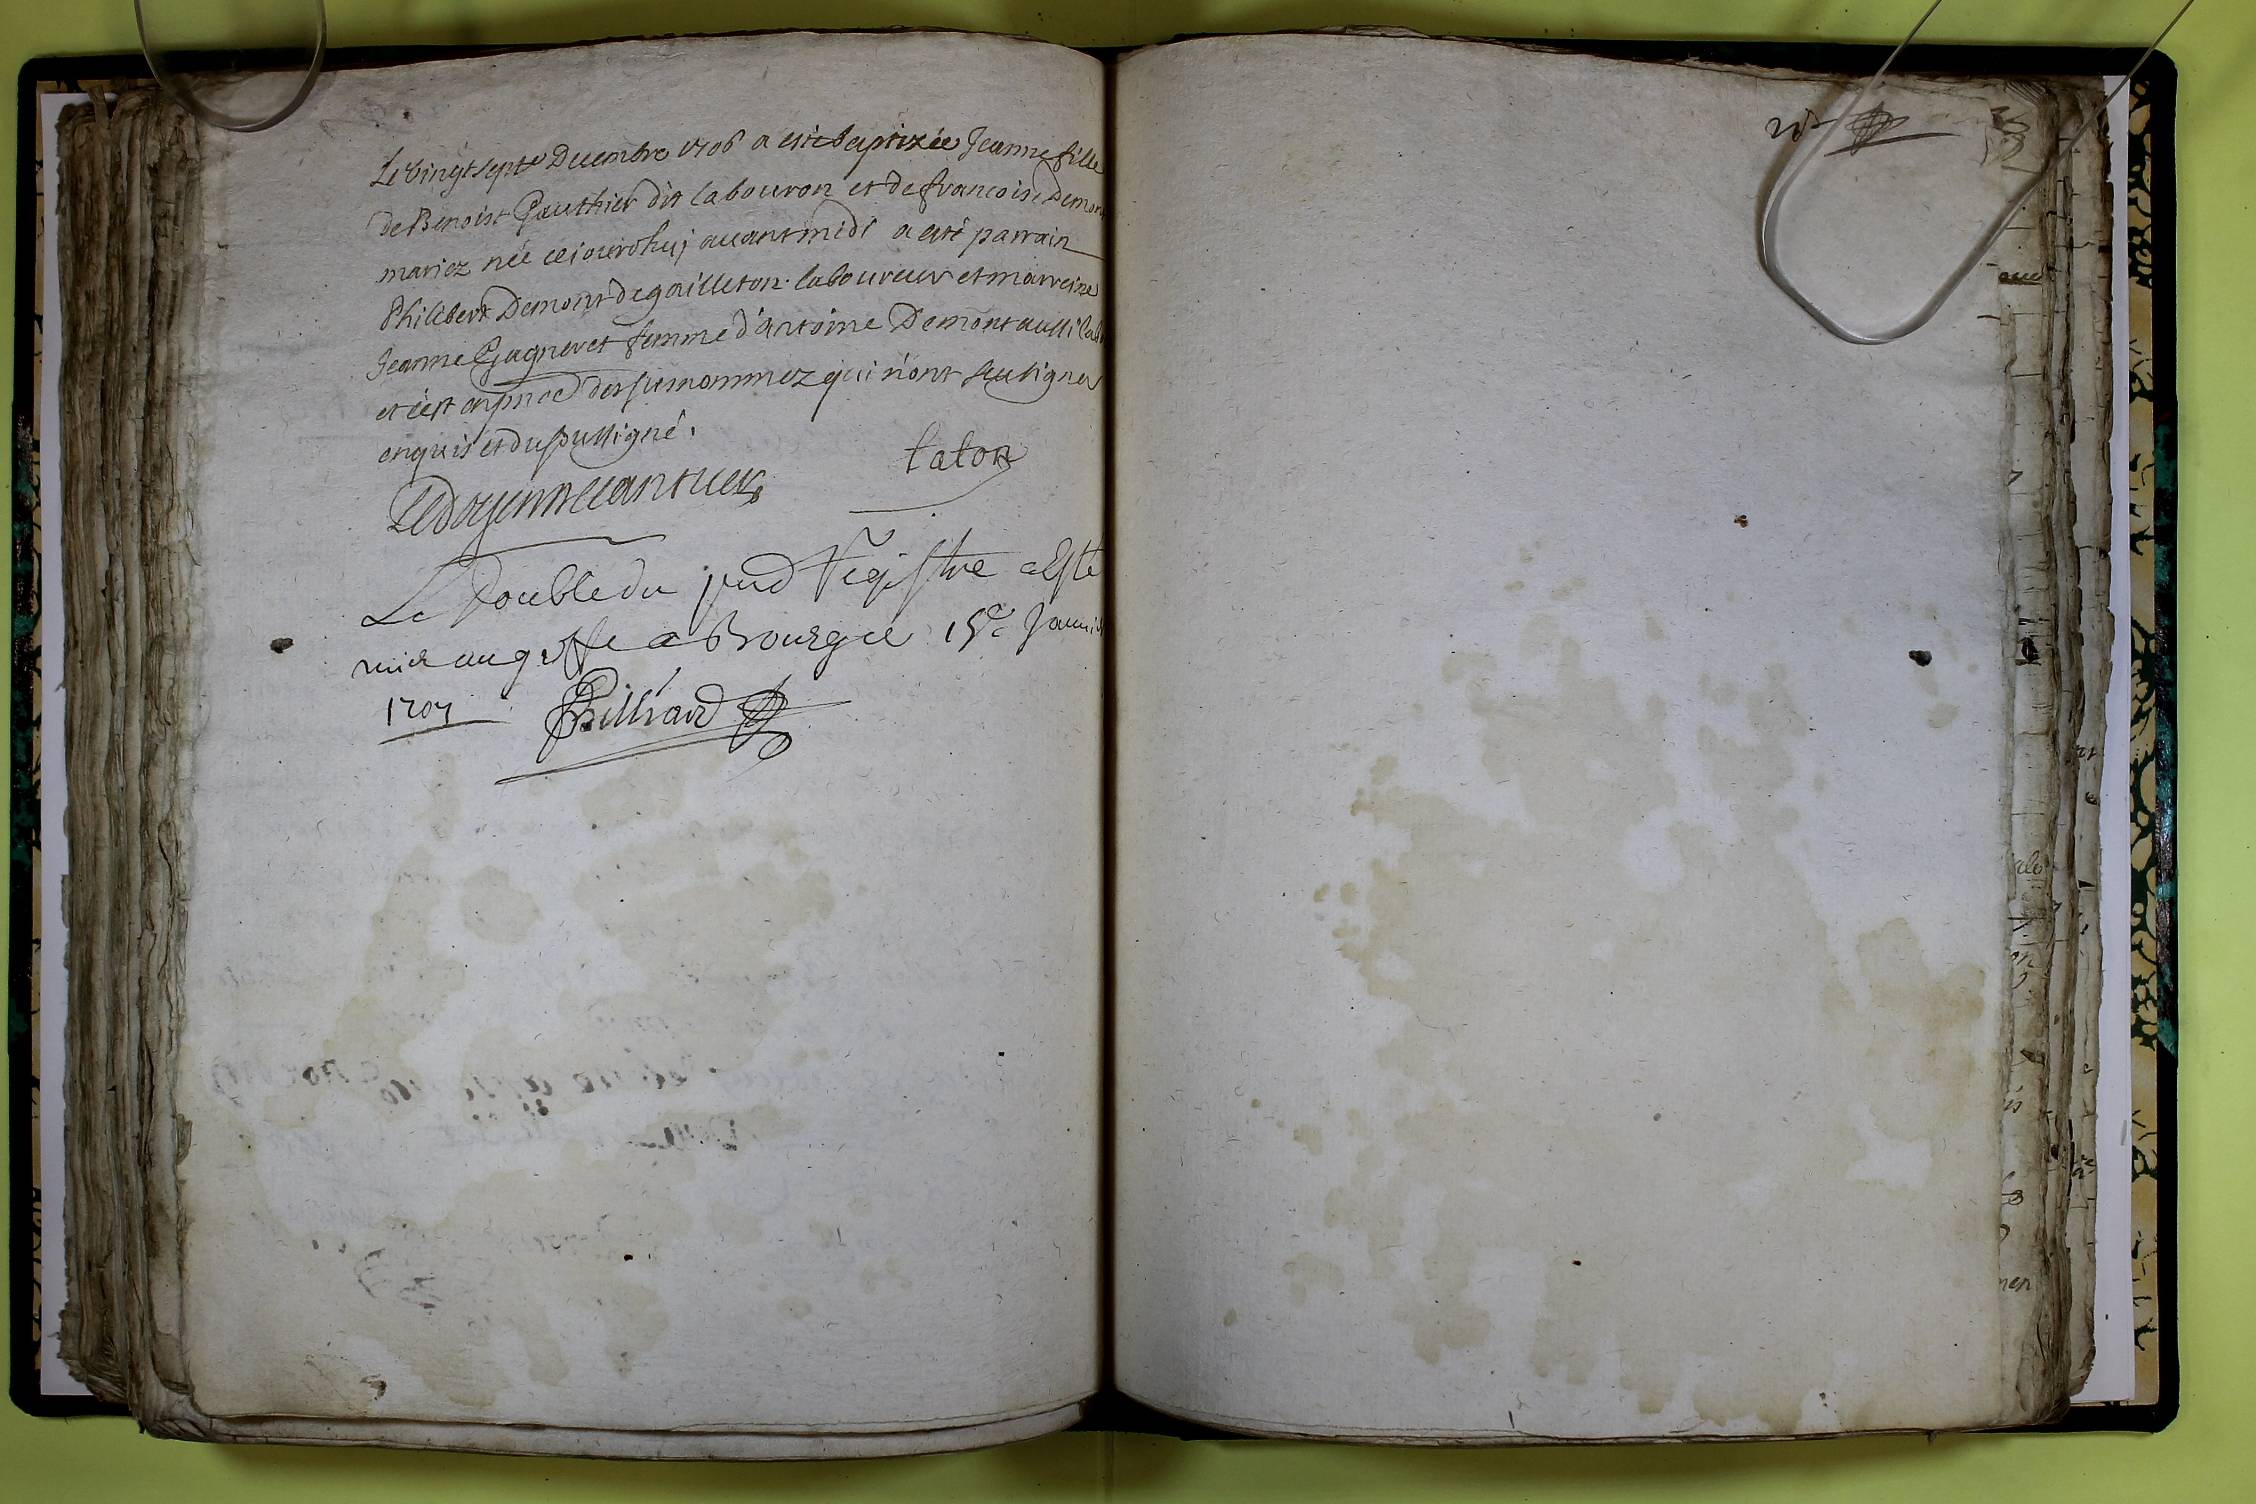 Le vingt sept Decembre 1706 a esté baptizée Jeanne fille
de Benoist Gauthier dit labouron et de francoise Demon
mariez née ce jourdhuj avant midi a esté parrain
Philibert Demont degailleton laboureur et marreine
Jeanne Gagneret femme d'antoine Demont aussi lab
et c'est en pnce des susnommez qui n'ont sceu signer
enquis et
Le Double du pnt Registre a Esté
mis au greffe a Bourg ce 15e Janvi
1707